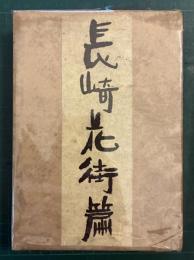 長崎花街篇